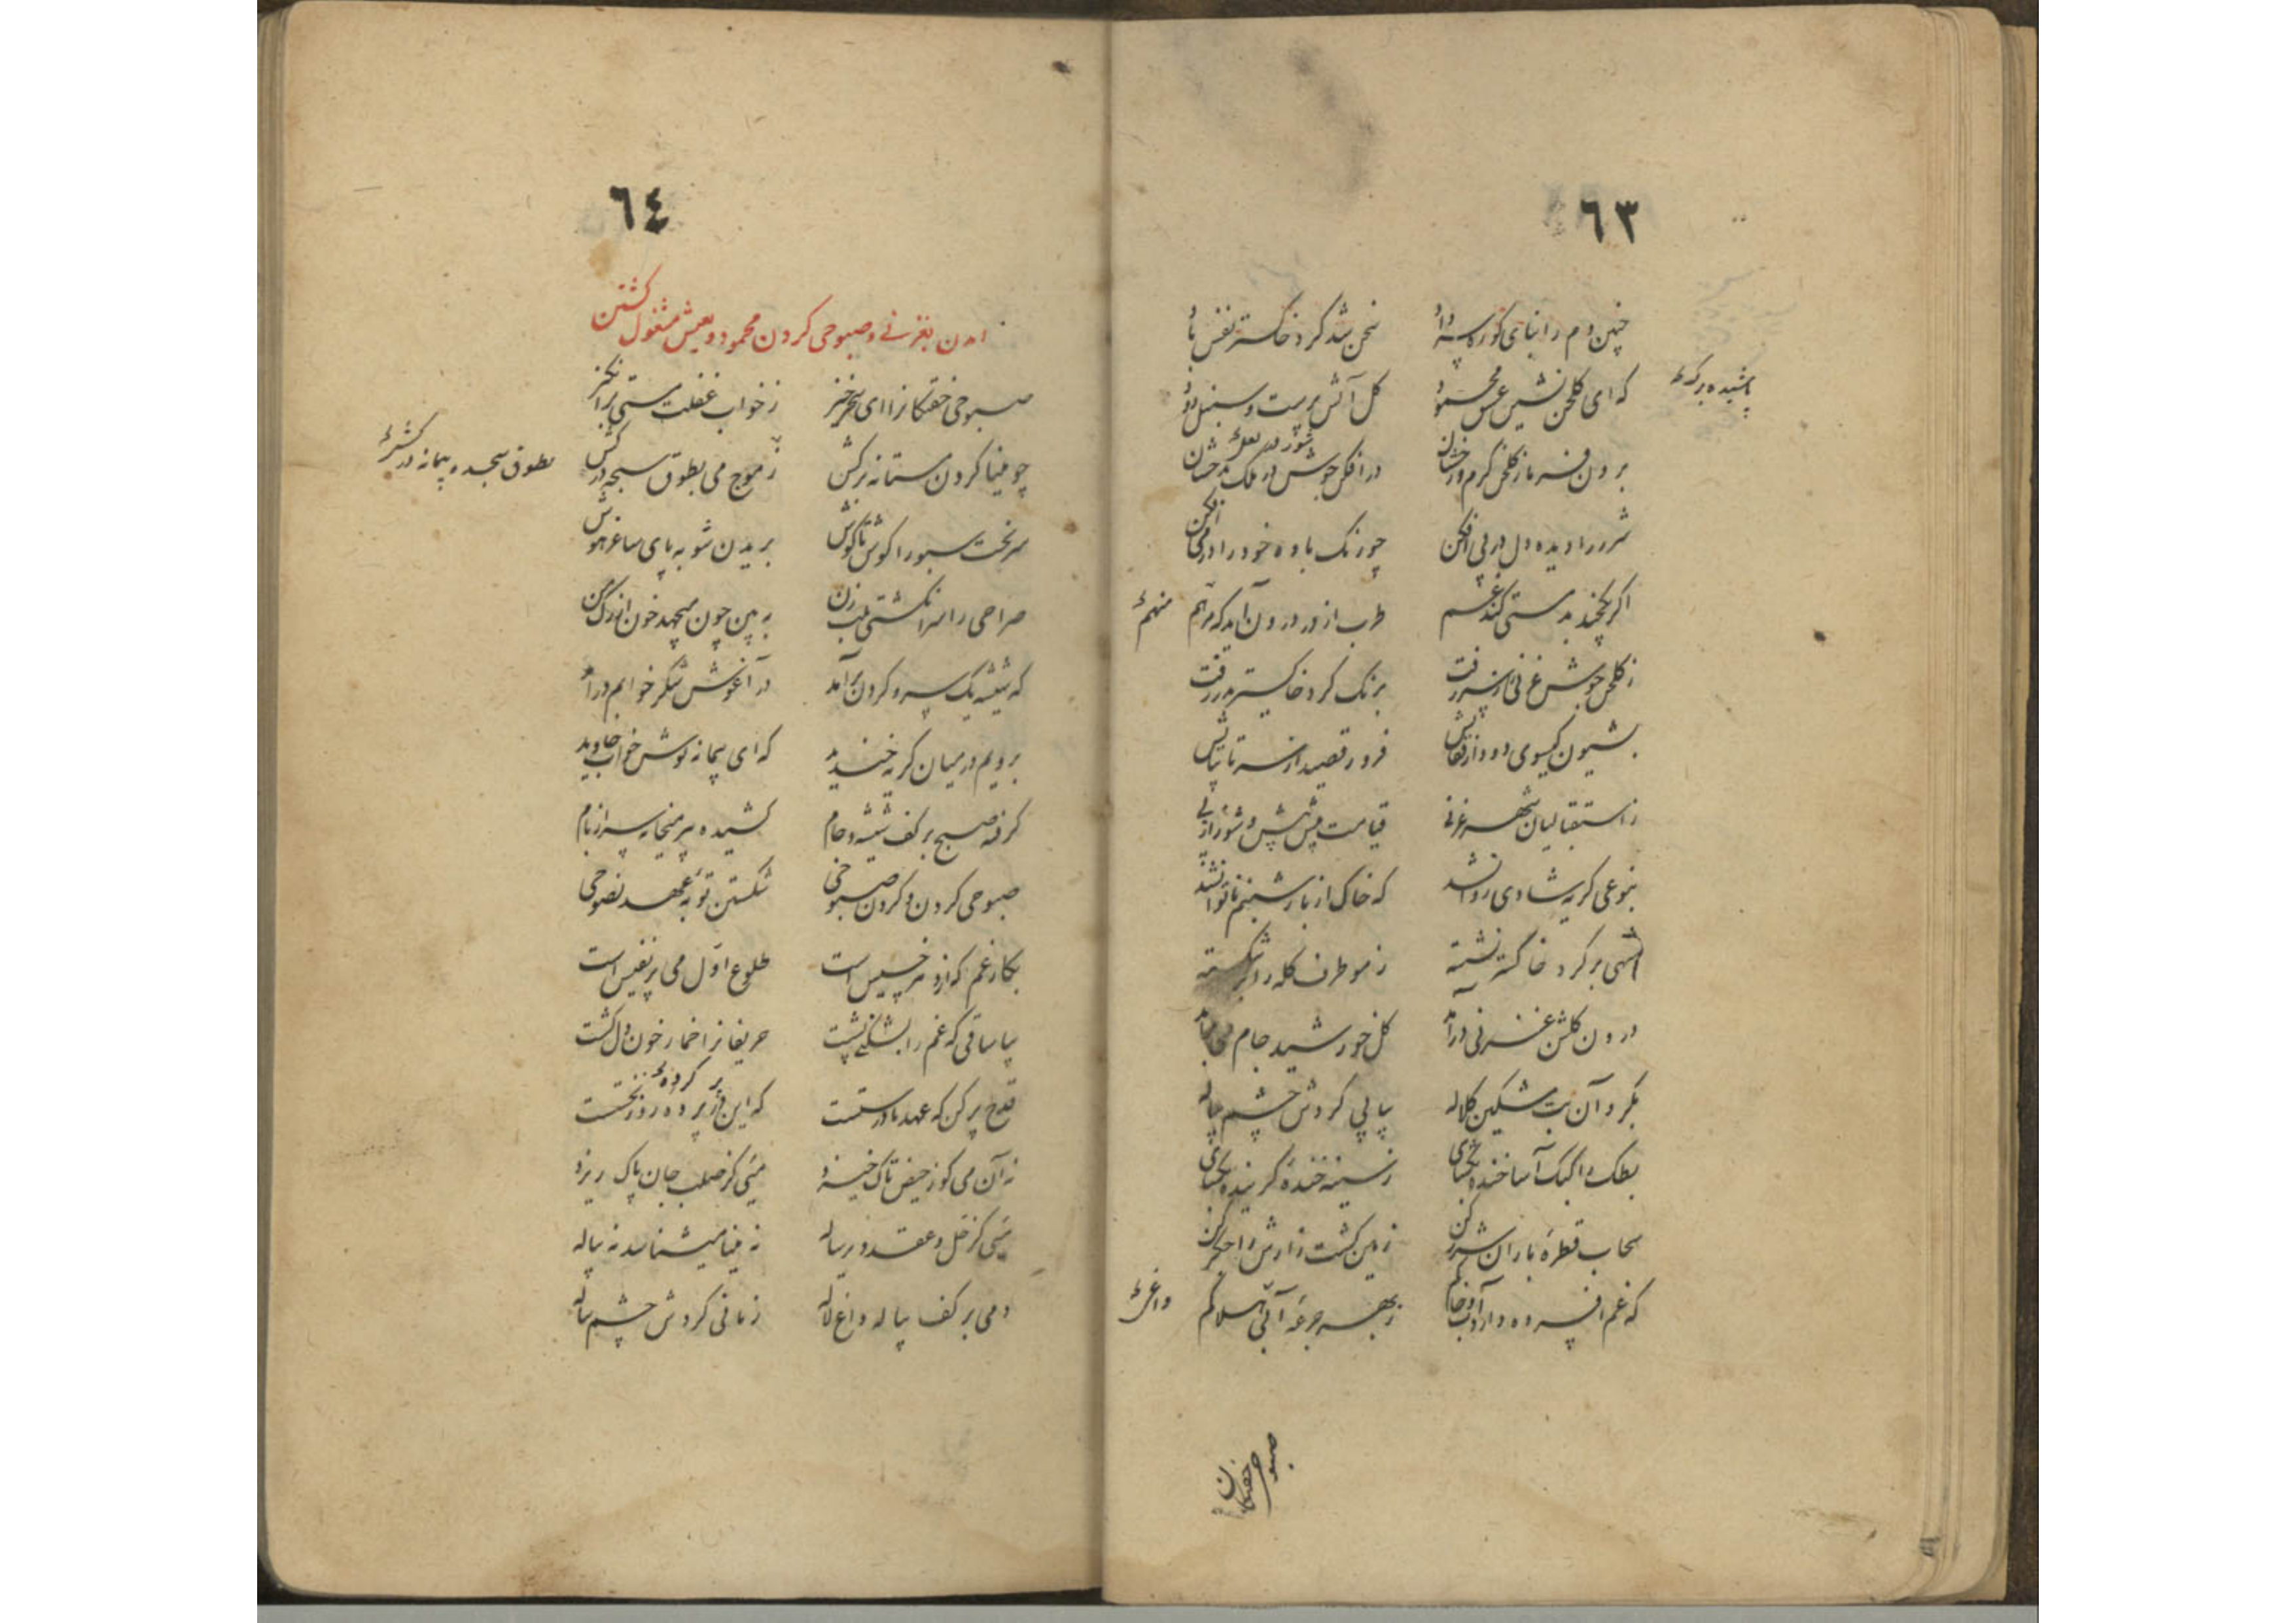 ٦٣
چنین دم را بنای کوره داد
سخن شد گرد خاکستر نفس باد
که ای گلخن نشین عشق محمود
گل آتش پرست و سنبل دود
برون فرما ز گلخن گرم و رخشان
در افکن جوش در ملک بدخشان
شرر را دیده دل در پی افکن
چو رنگ باده خود را در می افکن
اگر بدمستی کند غم
طرب از در درون آید که منهم
ز گلخن جوش غزنین
برنگ گرد خاکستر بدر رفت
بشیون گیسوی دود از قفایش
فرو رقصید از سر تا بپایش
ز استقبالیان شهر غزنی
قیامت پیش پیش و شور از پی
بنوعی گریه شادی روان شد
که خاک از بار شبنم ناتوان شد
شهی بر گرد خاکستر نشسته
ز مو طرف کله را بر شکسته
درون گلشن غزنی درآمد
گل خورشید جام می برآمد
بگرد آن بت مشکین کلاله
پیاپی گردش چشم پیاله
بطک را کبک آسا خنده بگشای
ز سینه خنده گرینده بگشای
سحاب قطره باران شرر کن
زمین کشت زارش را جگر کن
که غم افسرده دارد آب و خاکم
ز بهر جرعه آتش هلاکم
داغم
صبوحی خفتگان
٦٤
آمدن بغزنی و صبوحی کردن محمود و بعیش مشغول گشتن
صبوحی خفتگانرا ای سحر خیز
ز خواب غفلت مستی برانگیز
چو مینا گردن مستانه برکش
ز موج می بطوق سبحه درکش
بطوق سجده پیمانه درکش
سر نخت سبو را گوش تا گوش
بریدن شو به پای ساغر هوش
صراحی را سر انگشتی بلب زن
به بین چون میجهد خون از رگ من
که شیشه یک سر و گردن برآمد
در آغوش شکر خوابم درآمد
برویم در میان گریه خندید
که ای پیمانه نوش خواب جاوید
گرفته صبح بر کف شیشه و جام
کشیده پیر میخانه سر از بام
صبوحی کردن و کردن صبوحی
شکستن توبه عهد نصوحی
بکار غم که از و هر خسیس است
طلوع اول می پر نفیس است
بیا ساقی که غم را بشکنی پشت
حریفانرا خمار خون دل کشت
قدح پر کن که عهد ما درستست
که این پرورده روز نخستست
نه آن می کوز حیض تاک خیزد
میی کز صلب جان پاک ریزد
میی کز حل و عقد و رساله
نه مینا میشناسد نه پیاله
دمی بر کف پیاله داغ لاله
زمانی گردش چشم پیاله